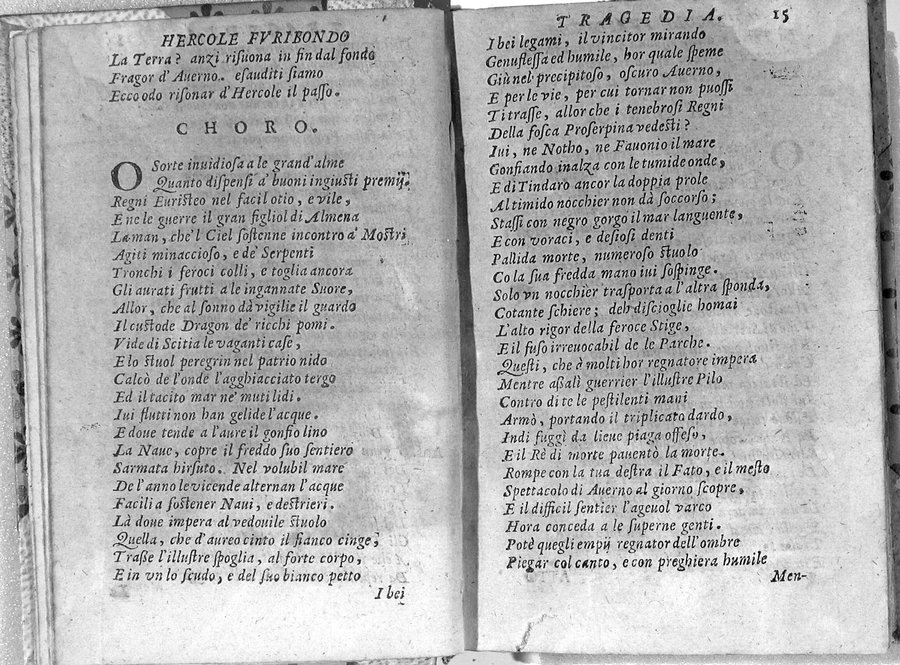 HERCOLE FVRIBONDO
La Terra? anzi risuona in fin dal fondo
Fragor d'Auerno. esauditi siamo
Ecco odo risonar d'Hercole il passo.
CHORO.
O Sorte inuidiosa a le grand'alme
Quanto dispensi a' buoni ingiusti premij.
Regni Euristeo nel facil otio, e vile,
E ne le guerre il gran figliol di Almena
La man, che'l Ciel sostenne incontro a' Mostri
Agiti minaccioso, e de' Serpenti
Tronchi i feroci colli, e toglia ancora
Gli aurati frutti a le ingannate Suore,
Allor, che al sonno dà vigilie il guardo
Il custode Dragon de' ricchi pomi.
Vide di Scitia le vaganti case,
E lo stuol peregrin nel patrio nido
Calcò de l'onde l'agghiacciato tergo
Ed il tacito mar ne' muti lidi.
Iui flutti non han gelide l'acque.
E doue tende a l'aure il gonfio lino
La Naue, copre il freddo suo sentiero
Sarmata hirsuto. Nel volubil mare
De l'anno le vicende alternan l'acque
Facili a sostener Naui, e destrieri.
Là doue impera al vedouile stuolo
Quella, che d'aureo cinto il fianco cinge,
Trasse l'illustre spoglia, al forte corpo,
E in vn lo scudo, e del suo bianco petto
I bei
TRAGEDIA. 15
I bei legami, il vincitor mirando
Genuflessa ed humile, hor quale speme
Giù nel precipitoso, oscuro Auerno,
E per le vie, per cui tornar non puossi
Ti trasse, allor che i tenebrosi Regni
Della fosca Proserpina vedesti?
Iui, ne Notho, ne Fauonio il mare
Gonfiando inalza con le tumide onde,
E di Tindaro ancor la doppia prole
Al timido nocchier non dà soccorso;
Stassi con negro gorgo il mar languente,
E con voraci, e desiosi denti
Pallida morte, numeroso stuolo
Co la sua fredda mano iui sospinge.
Solo vn nocchier trasporta a l'altra sponda,
Cotante schiere; deh discioglie homai
L'alto rigor della feroce Stige,
E il fuso irreuocabil de le Parche.
Questi, che à molti hor regnatore impera
Mentre assalì guerrier l'illustre Pilo
Contro di te le pestilenti mani
Armò, portando il triplicato dardo,
Indi fuggì da lieue piaga offeso,
E il Rè di morte pauentò la morte.
Rompe con la tua destra il Fato, e il mesto
Spettacolo di Auerno al giorno scopre,
E il difficil sentier l'ageuol varco
Hora conceda a le superne genti.
Potè quegli empij regnator dell'ombre
Piegar col canto, e con preghiera humile
Men-